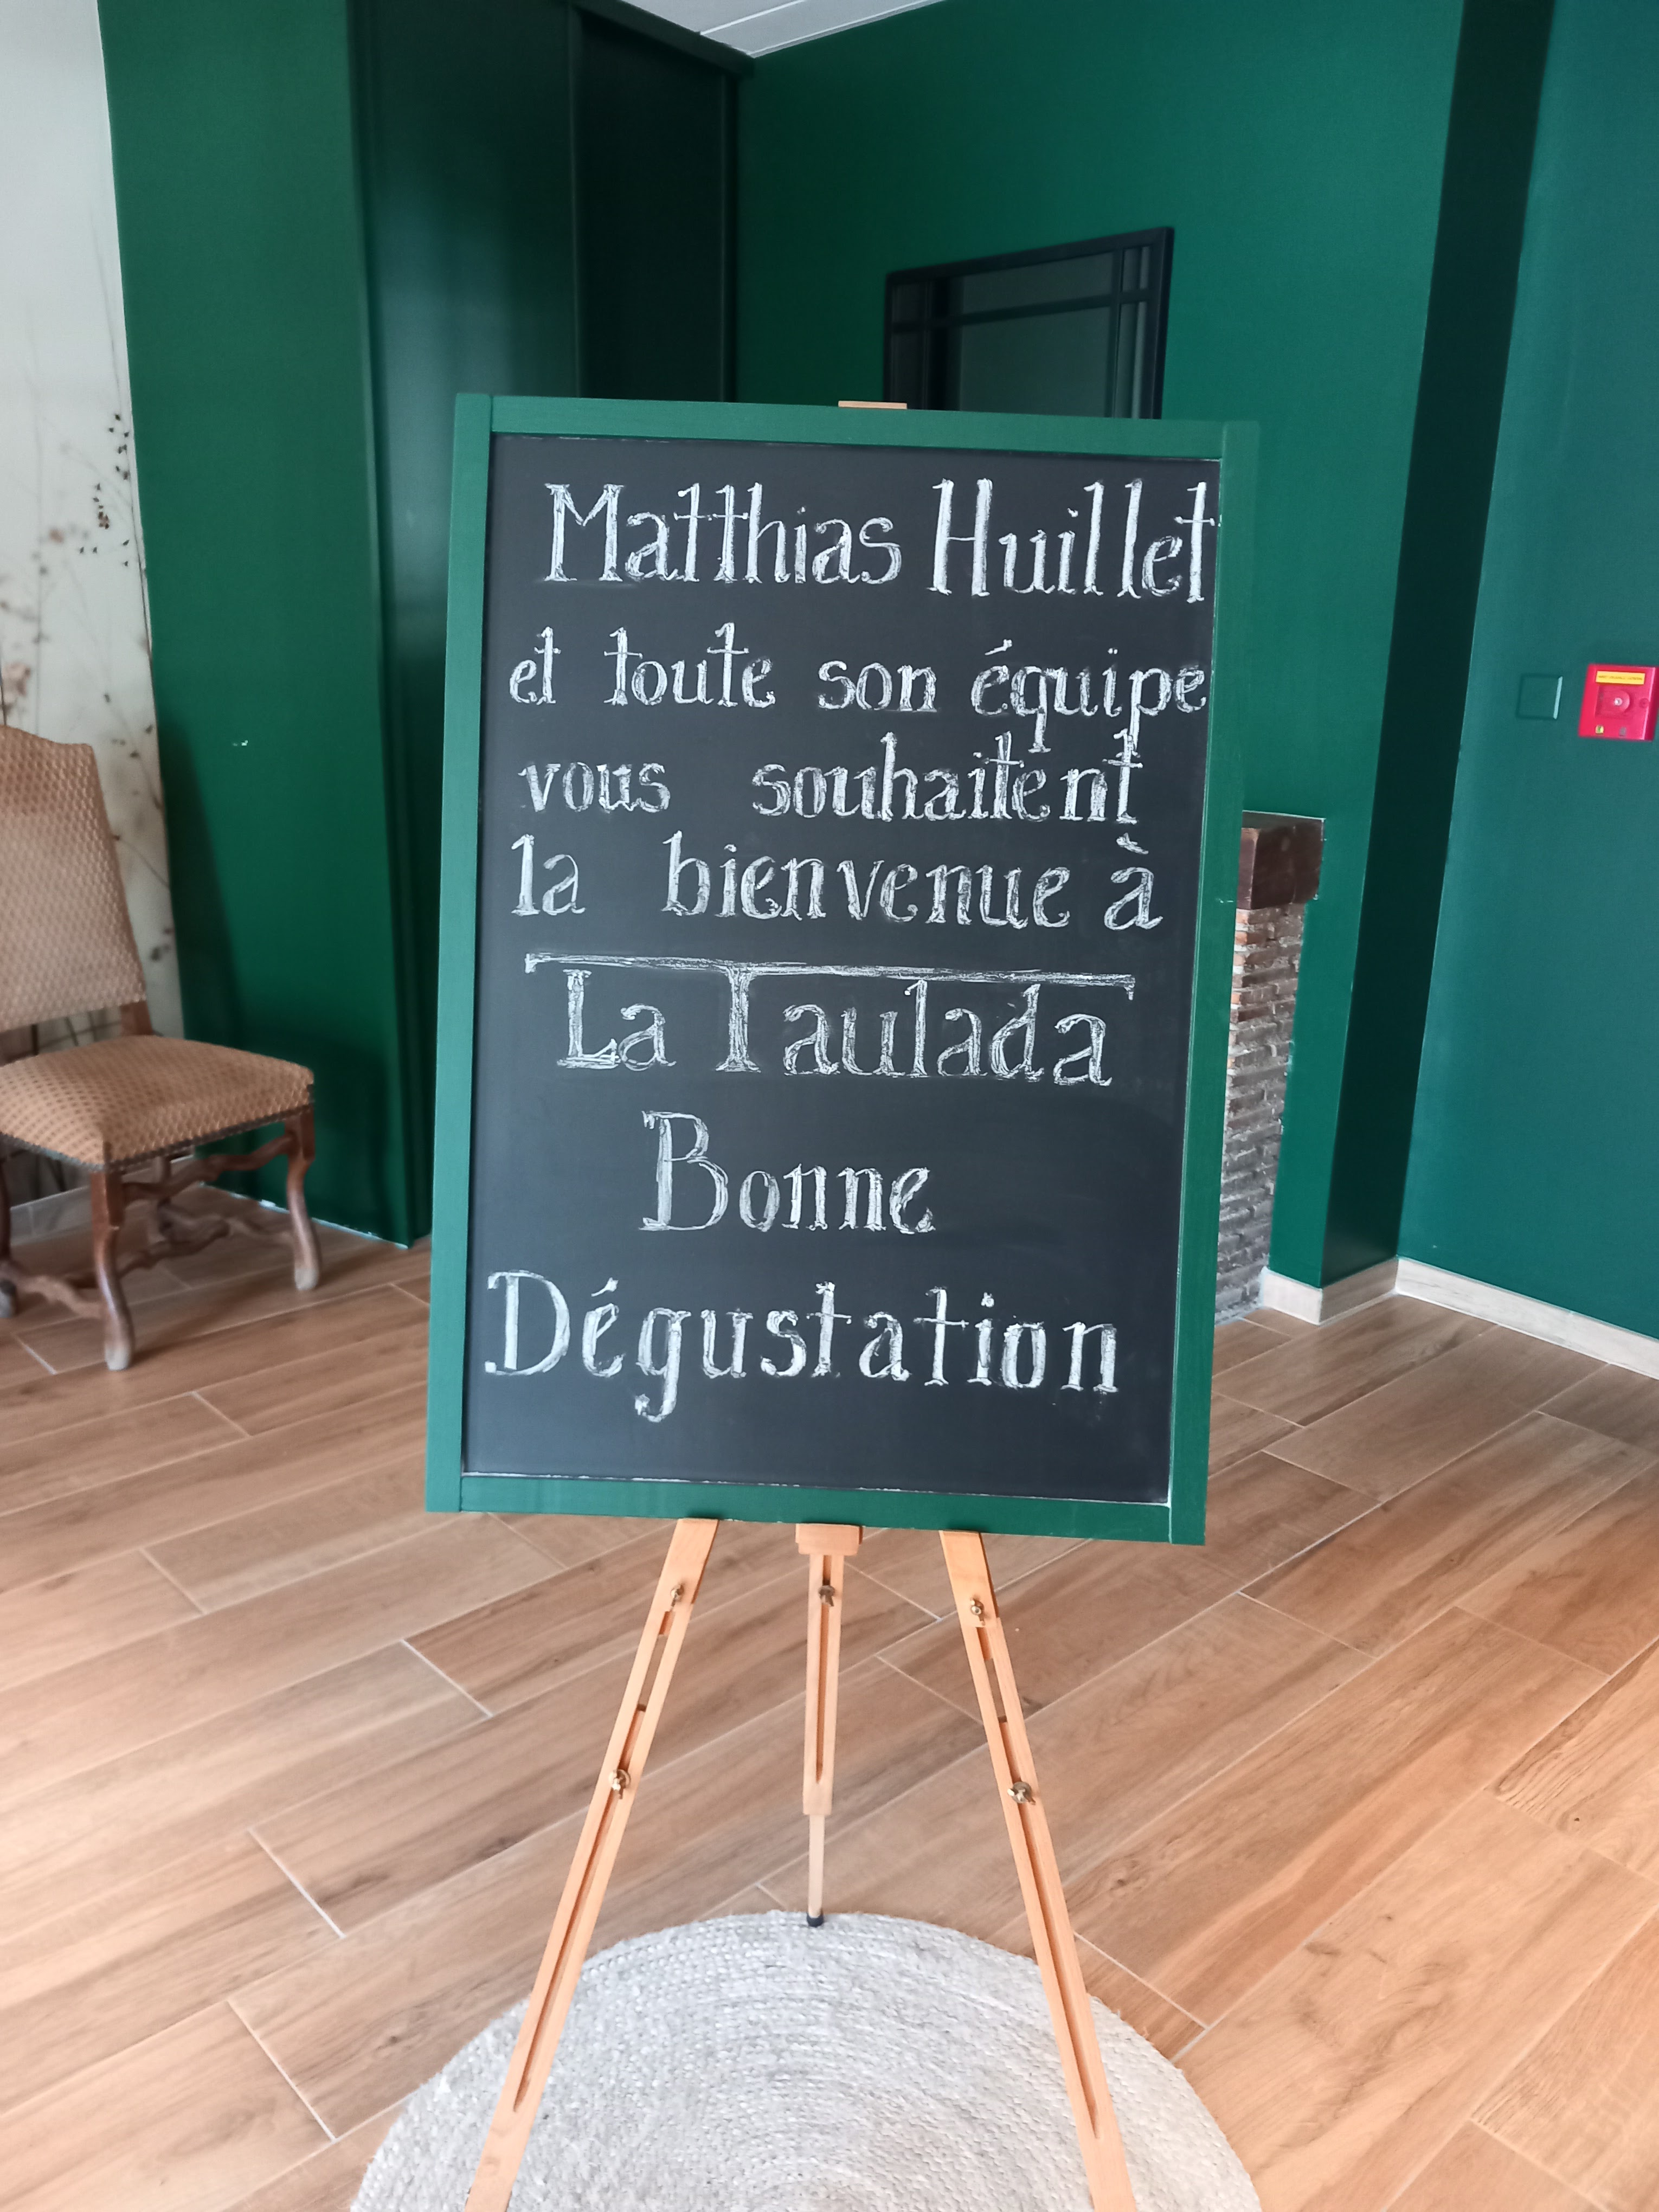 Matthias Huillet
et toute son équipe
vous souhaitent
la bienvenue à
La Taulada
Bonne
Dégustation